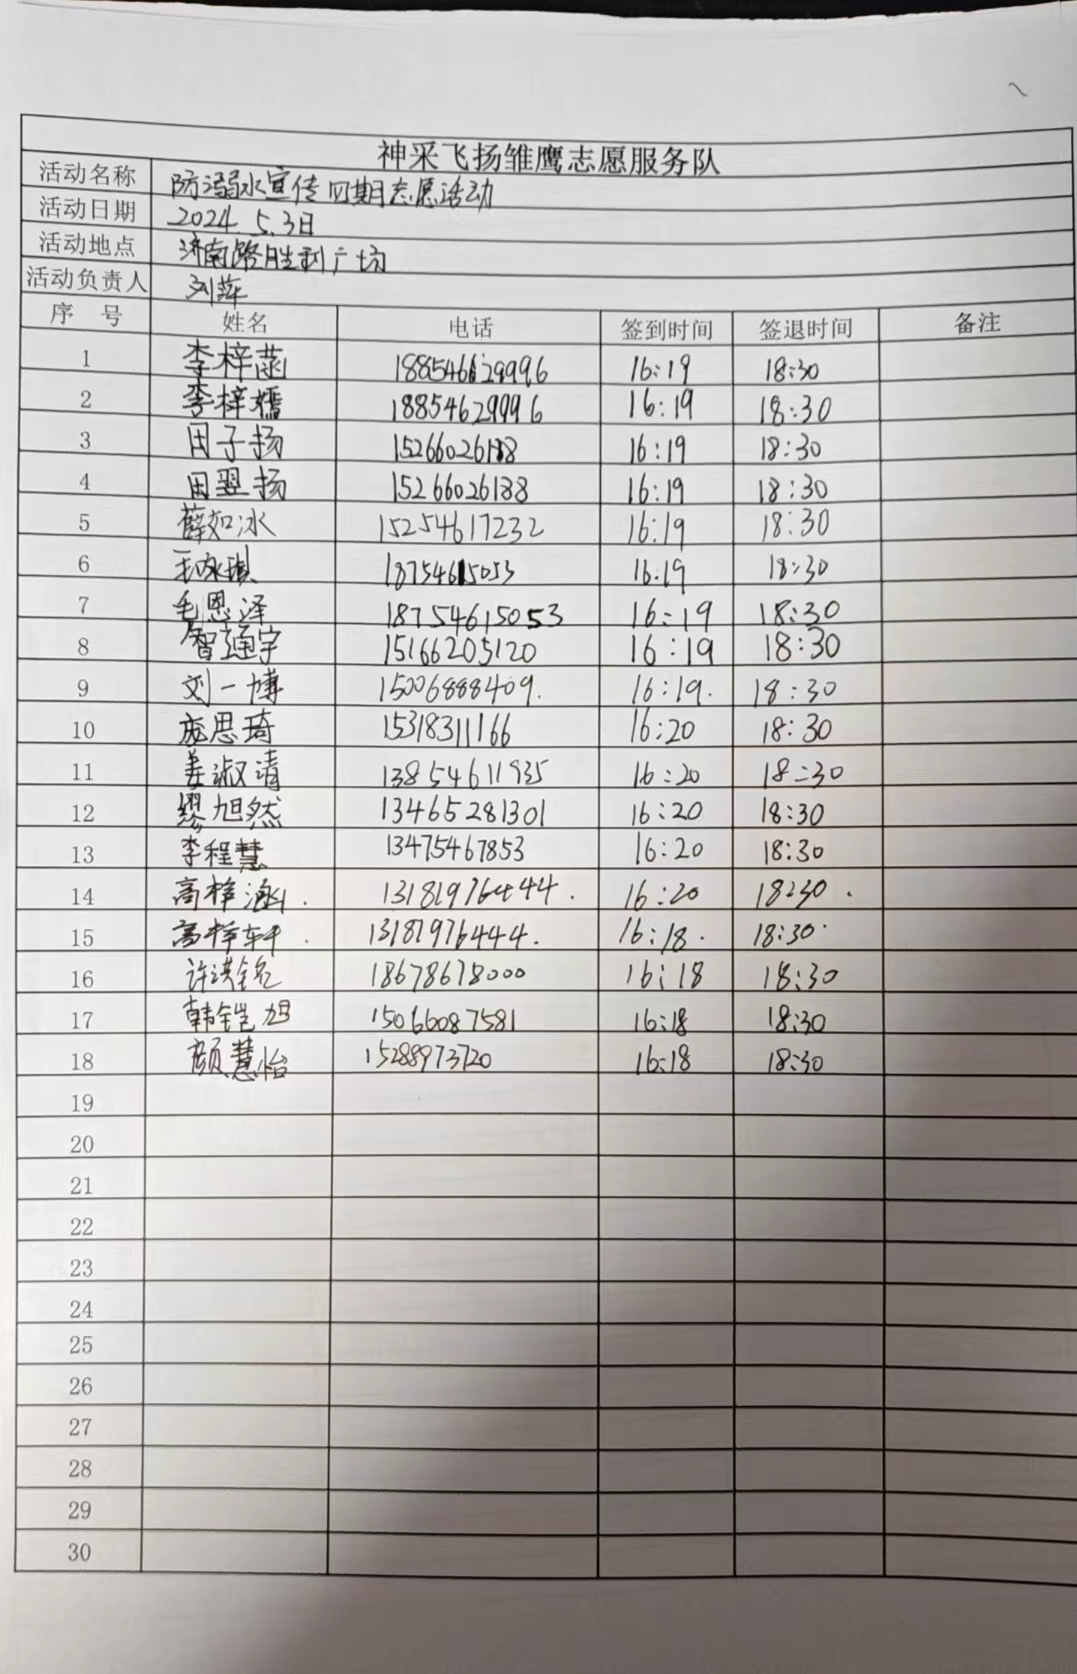 神采飞扬雏鹰志愿服务队
活动名称 防溺水宣传四期志愿活动
活动日期 2024.5.3日
活动地点 济南路胜利广场
活动负责人 刘萍
序 号 姓名 电话 签到时间 签退时间 备注
1 李梓菡 16:19 18:30
2 李梓嬬 18854629996 16:19 18:30
3 田子扬 15266026188 16:19 18:30
4 田翌扬 15266026188 16:19 18:30
5 薛如冰 15254617232 16:19 18:30
6 18754615053 16:19 18:30
7 毛恩泽 18754615053 16:19 18:30
8 智通宇 15166205120 16:19 18:30
9 刘一博 15006888409. 16:19. 18:30
10 庞思琦 15318311166 16:20 18:30
11 姜淑清 13854611935 16:20 18:30
12 缪旭然 13465281301 16:20 18:30
13 李程慧 13475467853 16:20 18:30
14 高梓涵. 13181976444. 16:20 18:30.
15 高梓轩. 13181976444. 16:18. 18:30.
16 许洪铭 18678678000 16:18 18:30
17 韩铠旭 15066087581 16:18 18:30
18 颜慧怡 15288973720 16:18 18:30
19
20
21
22
23
24
25
26
27
28
29
30